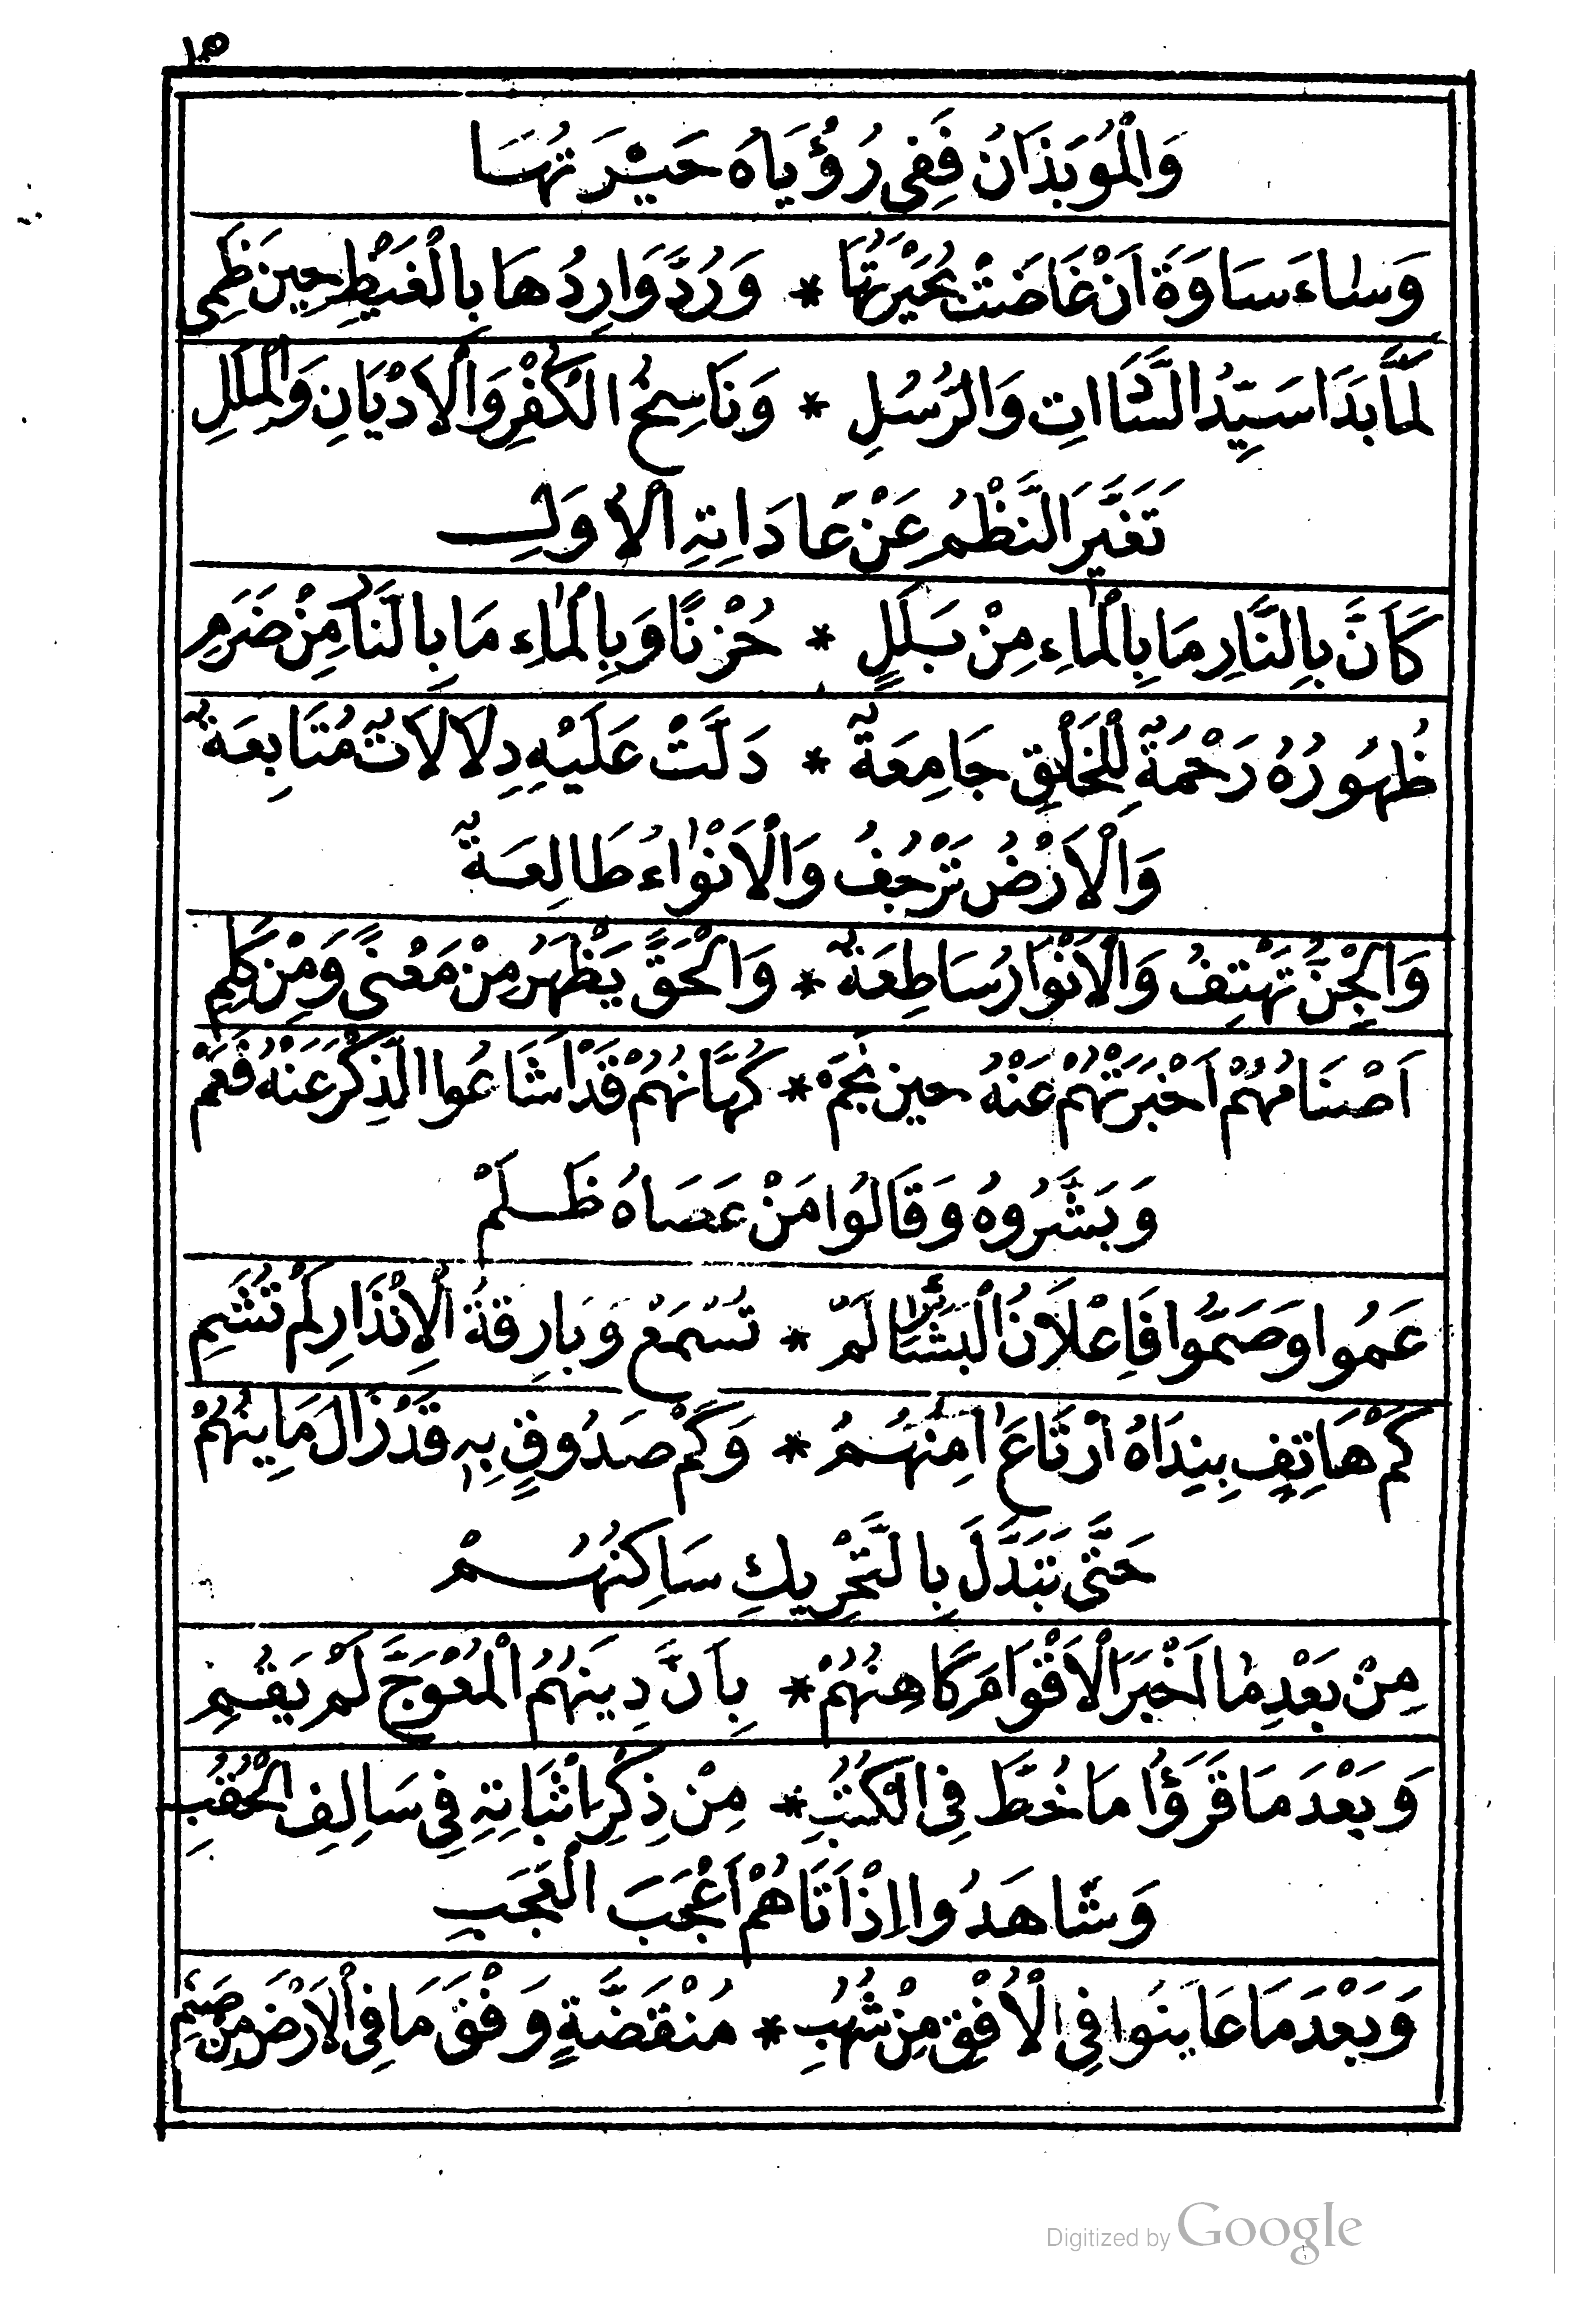 ١٥
وَالْمُوبَذَانُ فَفِي رُؤْيَاهُ حَيْرَتُهَا
وَسَاءَ سَاوَةَ اَنْ غَاضَتْ بُحَيْرَتُهَا * وَرُدَّ وَارِدُهَا بِالْغَيْظِ حِينَ ظَمِي
لَمَّا بَدَا سَيِّدُ السَّادَاتِ وَالرُّسُلِ * وَنَاسِخُ الْكُفْرِ وَالْاَدْيَانِ وَالْمِلَلِ
تَغَيَّرَ النَّظْمُ عَنْ عَادَاتِهِ الْاُوَلِ
كَاَنَّ بِالنَّارِ مَا بِالْمَاءِ مِنْ بَلَلٍ * حُزْنًا وَبِالْمَاءِ مَا بِالنَّارِ مِنْ ضَرَمِ
ظُهُورُهُ رَحْمَةٌ لِلْخَلْقِ جَامِعَةٌ * دَلَّتْ عَلَيْهِ دِلَالَاتٌ مُتَابِعَةٌ
وَالْاَرْضُ تَرْجُفُ وَالْاَنْوَاءُ طَالِعَةٌ
وَالْجِنُّ تَهْتِفُ وَالْاَنْوَارُ سَاطِعَةٌ * وَالْحَقُّ يَظْهَرُ مِنْ مَعْنًى وَمِنْ كَلِمِ
اَصْنَامُهُمْ اَخْبَرَتْهُمْ عَنْهُ حِينَ نَجَمْ * كُهَّانُهُمْ قَدْ اَشَاعُوا الذِّكْرَ عَنْهُ فَعَمْ
وَبَشَّرُوهُ وَقَالُوا مَنْ عَصَاهُ ظَلَمْ
عَمُوا وَصَمُّوا فَاِعْلَانُ الْبَشَائِرِ لَمْ * تُسْمَعْ وَبَارِقَةُ الْاِنْذَارِ لَمْ تُشَمِ
كَمْ هَاتِفٍ بِنِدَاهُ ارْتَاعَ اٰمِنُهُمْ * وَكَمْ صَدُوقٍ بِهِ قَدْ زَالَ مَايِنُهُمْ
حَتَّى تَبَدَّلَ بِالتَّحْرِيكِ سَاكِنُهُمْ
مِنْ بَعْدِ مَا اَخْبَرَ الْاَقْوَامَ كَاهِنُهُمْ * بِاَنَّ دِينَهُمُ الْمُعْوَجَّ لَمْ يَقُمِ
وَبَعْدَ مَا قَرَؤُا مَا خُطَّ فِي الْكُتُبِ * مِنْ ذِكْرِ اِثْبَاتِهِ فِي سَالِفِ الْحُقُبِ
وَشَاهَدُوا اِذْ اَتَاهُمْ اَعْجَبَ الْعَجَبِ
وَبَعْدَ مَا عَايَنُوا فِي الْاُفْقِ مِنْ شُهُبِ * مُنْقَضَّةٍ وَفْقَ مَا فِي الْاَرْضِ مِنْ صَنَمِ
Digitized by Google